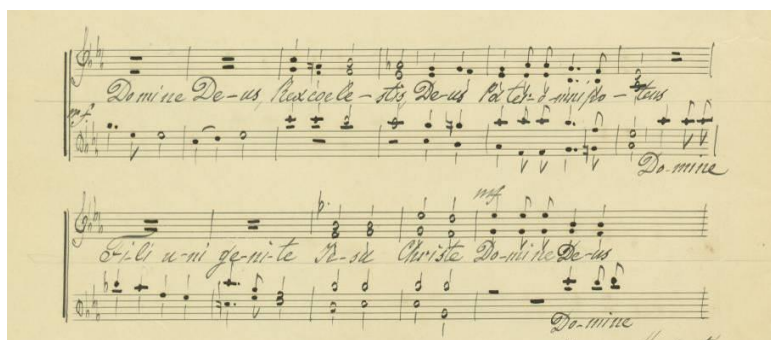 Domine De-us, Rex coele-stis, De-us Pater o-mnipo-tens
mf.
Do-mine
mf
Fi-li u-ni ge-ni-te Je-su Christe Do-mine De-us
Do-mine